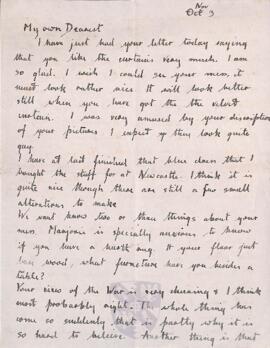 Nov
Oct 3
My own Dearest
I have just had your letter today saying
that you like the curtains very much. I am
so glad. I wish I could see your mess, it
must look rather nice. It will look better
still when you have got the the velvet
curtain. I was very amused by your description
of your pictures I expect they look quite
gay.
I have at last finished that blue dress that I
bought the stuff for at Newcastle. I think it is
quite nice though there are still a few small
alterations to make
We want know two or three things about your
mess. Marjorie is specially anxious to know
if you have a hearth rug. Is your floor just
bare wood, what furniture have you besides a
table?
Your view of the War is very cheering & I think
most probably right. The whole thing has
come so suddenly, that is partly why it is
so hard to believe. Another thing is that